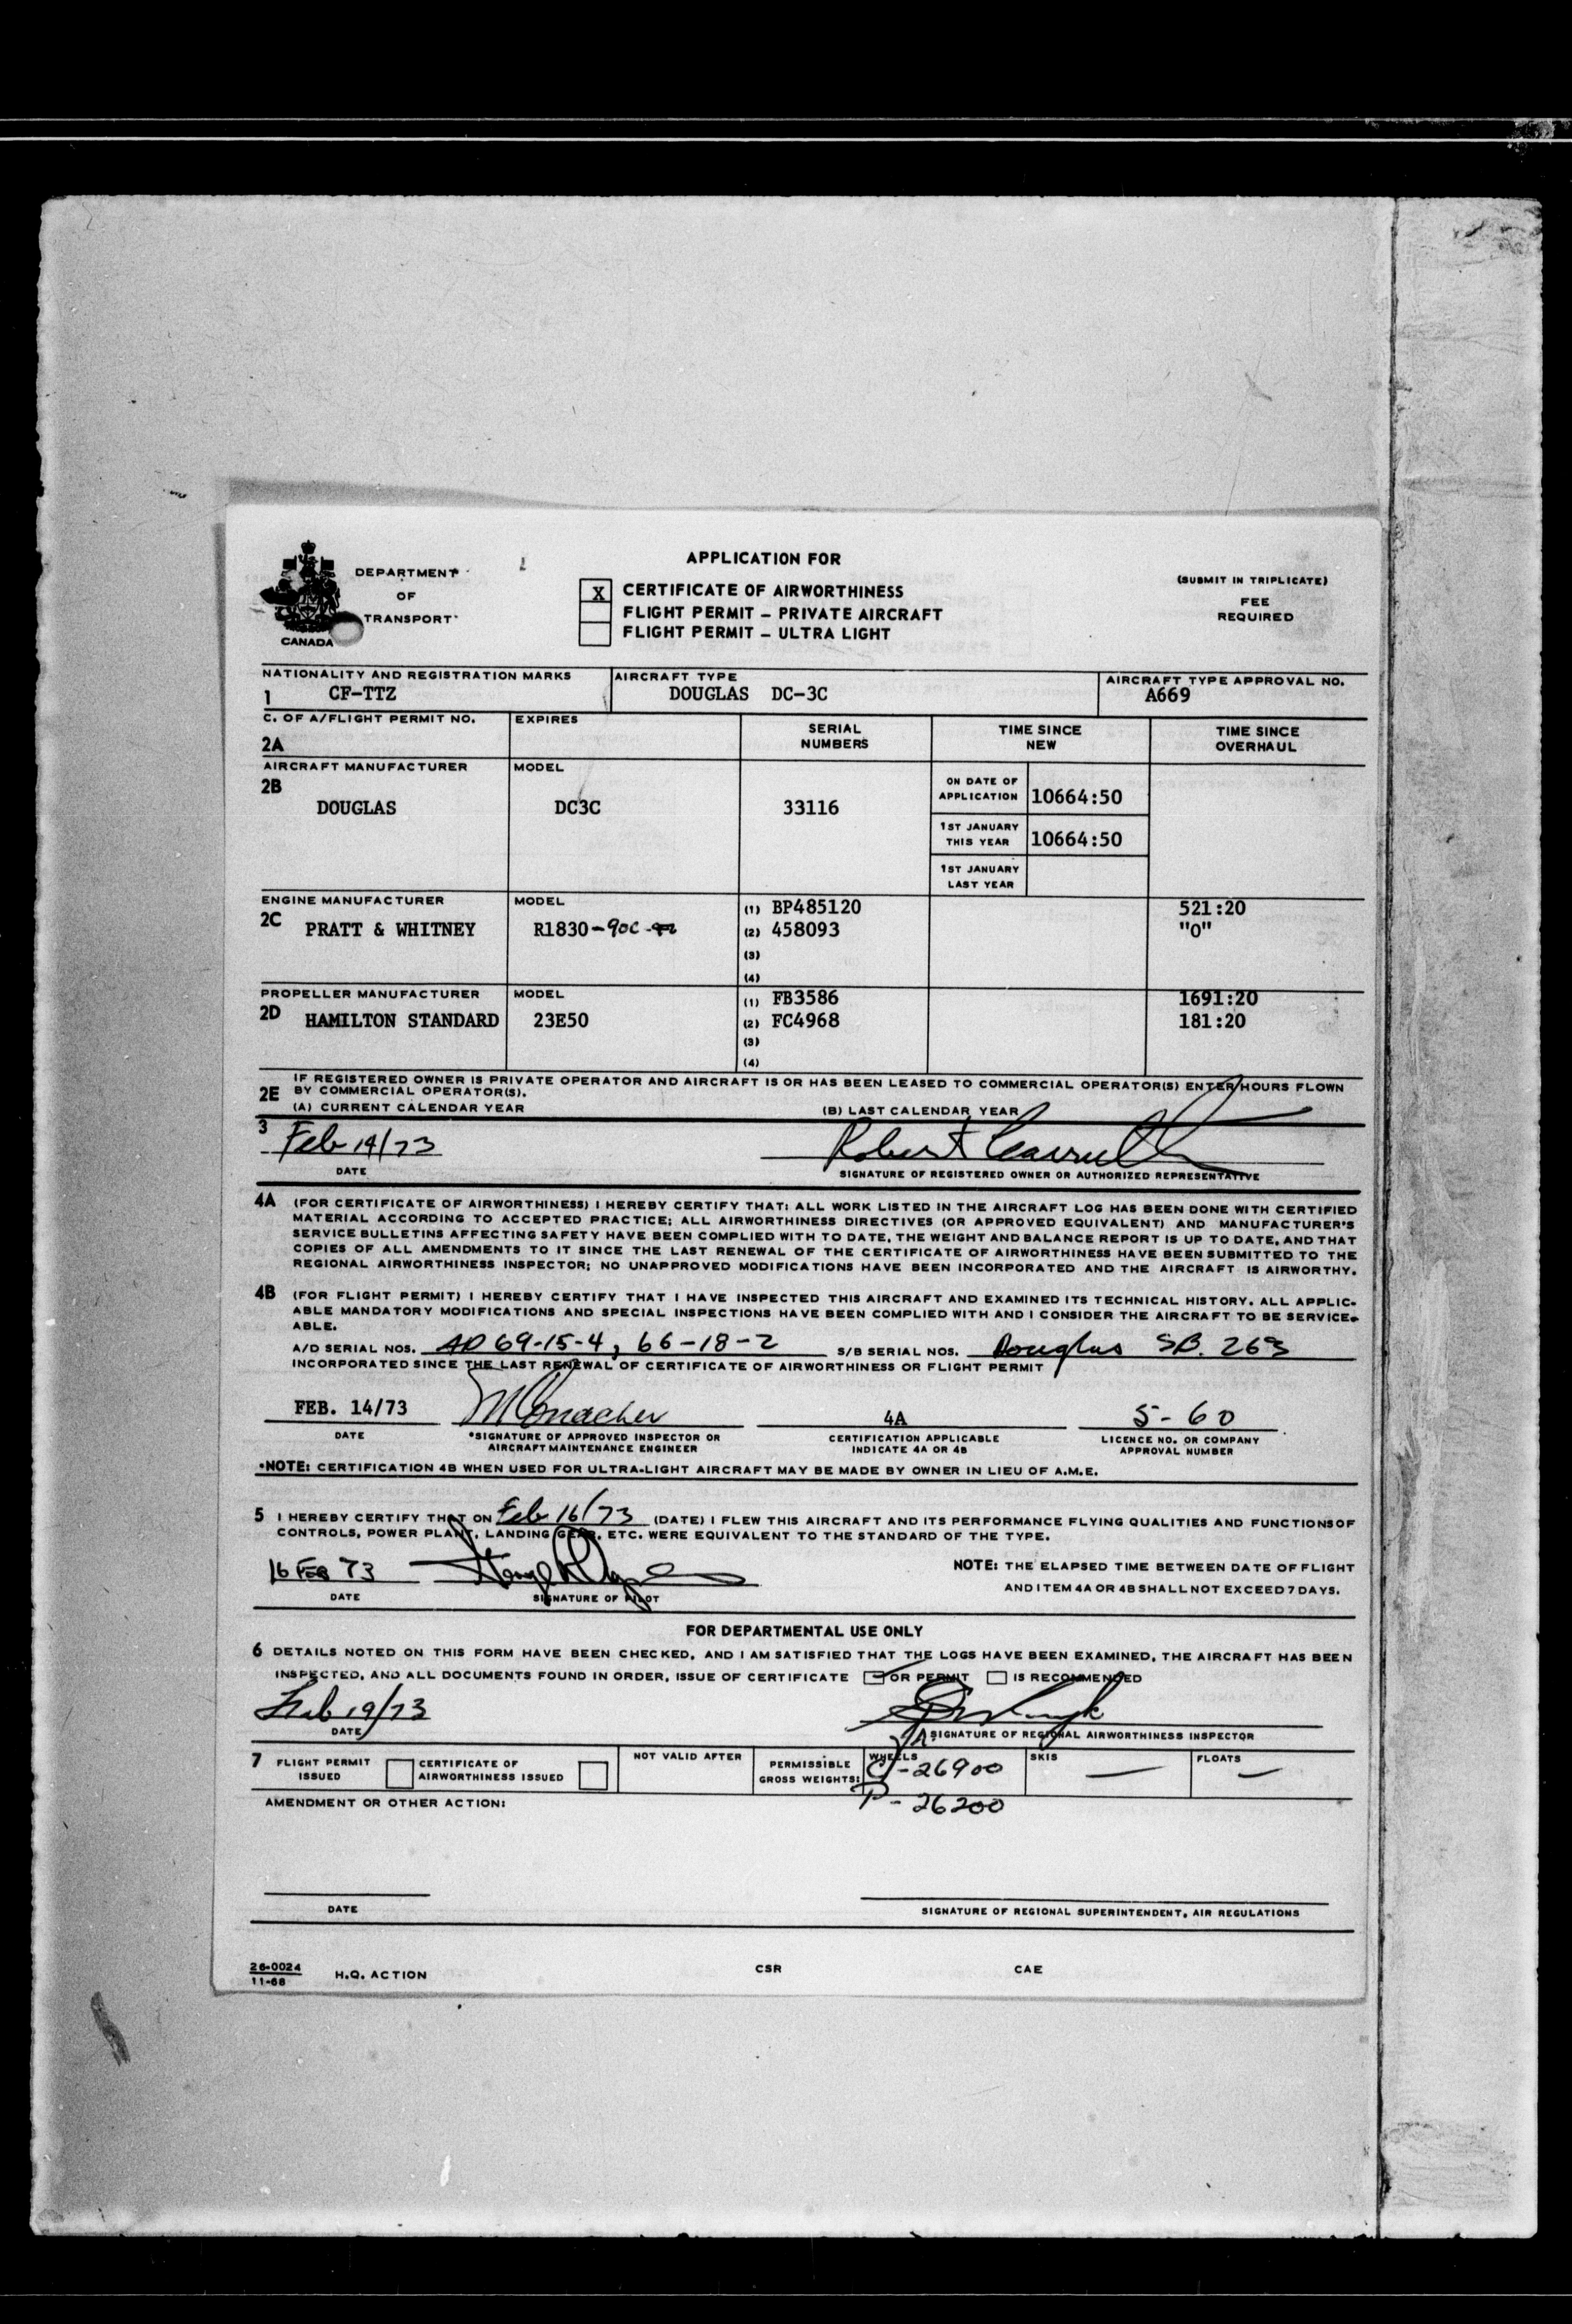 APPLICATION FOR
DEPARTMENT
OF
TRANSPORT
CANADA
X CERTIFICATE OF AIRWORTHINESS
FLIGHT PERMIT – PRIVATE AIRCRAFT
FLIGHT PERMIT – ULTRA LIGHT
(SUBMIT IN TRIPLICATE)
FEE
REQUIRED
NATIONALITY AND REGISTRATION MARKS
1 CF-TTZ
AIRCRAFT TYPE
DOUGLAS DC-3C
AIRCRAFT TYPE APPROVAL NO.
A669
C. OF A/FLIGHT PERMIT NO.
2A
EXPIRES
SERIAL
NUMBERS
TIME SINCE
NEW
TIME SINCE
OVERHAUL
AIRCRAFT MANUFACTURER
2B
DOUGLAS
MODEL
DC3C
33116
ON DATE OF
APPLICATION 10664:50
1ST JANUARY
THIS YEAR 10664:50
1ST JANUARY
LAST YEAR
ENGINE MANUFACTURER
2C PRATT & WHITNEY
MODEL
R1830-90C
(1) BP485120 521:20
(2) 458093 "0"
(3)
(4)
PROPELLER MANUFACTURER
2D HAMILTON STANDARD
MODEL
23E50
(1) FB3586 1691:20
(2) FC4968 181:20
(3)
(4)
2E IF REGISTERED OWNER IS PRIVATE OPERATOR AND AIRCRAFT IS OR HAS BEEN LEASED TO COMMERCIAL OPERATOR(S) ENTER HOURS FLOWN
BY COMMERCIAL OPERATOR(S).
(A) CURRENT CALENDAR YEAR (B) LAST CALENDAR YEAR
3 Feb 14/73 Robert
DATE SIGNATURE OF REGISTERED OWNER OR AUTHORIZED REPRESENTATIVE
4A (FOR CERTIFICATE OF AIRWORTHINESS) I HEREBY CERTIFY THAT: ALL WORK LISTED IN THE AIRCRAFT LOG HAS BEEN DONE WITH CERTIFIED
MATERIAL ACCORDING TO ACCEPTED PRACTICE; ALL AIRWORTHINESS DIRECTIVES (OR APPROVED EQUIVALENT) AND MANUFACTURER'S
SERVICE BULLETINS AFFECTING SAFETY HAVE BEEN COMPLIED WITH TO DATE, THE WEIGHT AND BALANCE REPORT IS UP TO DATE, AND THAT
COPIES OF ALL AMENDMENTS TO IT SINCE THE LAST RENEWAL OF THE CERTIFICATE OF AIRWORTHINESS HAVE BEEN SUBMITTED TO THE
REGIONAL AIRWORTHINESS INSPECTOR; NO UNAPPROVED MODIFICATIONS HAVE BEEN INCORPORATED AND THE AIRCRAFT IS AIRWORTHY.
4B (FOR FLIGHT PERMIT) I HEREBY CERTIFY THAT I HAVE INSPECTED THIS AIRCRAFT AND EXAMINED ITS TECHNICAL HISTORY. ALL APPLIC-
ABLE MANDATORY MODIFICATIONS AND SPECIAL INSPECTIONS HAVE BEEN COMPLIED WITH AND I CONSIDER THE AIRCRAFT TO BE SERVICE-
ABLE.
A/D SERIAL NOS. AD 69-15-4, 66-18-2 S/B SERIAL NOS. Douglas SB. 263
INCORPORATED SINCE THE LAST RENEWAL OF CERTIFICATE OF AIRWORTHINESS OR FLIGHT PERMIT
FEB. 14/73 4A 5-60
DATE
*SIGNATURE OF APPROVED INSPECTOR OR
AIRCRAFT MAINTENANCE ENGINEER
CERTIFICATION APPLICABLE
INDICATE 4A OR 4B
LICENCE NO. OR COMPANY
APPROVAL NUMBER
*NOTE: CERTIFICATION 4B WHEN USED FOR ULTRA-LIGHT AIRCRAFT MAY BE MADE BY OWNER IN LIEU OF A.M.E.
5 I HEREBY CERTIFY THAT ON Feb 16/73 (DATE) I FLEW THIS AIRCRAFT AND ITS PERFORMANCE FLYING QUALITIES AND FUNCTIONS OF
CONTROLS, POWER PLANT, LANDING GEAR, ETC. WERE EQUIVALENT TO THE STANDARD OF THE TYPE.
16 FEB 73
DATE SIGNATURE OF PILOT
NOTE: THE ELAPSED TIME BETWEEN DATE OF FLIGHT
AND ITEM 4A OR 4B SHALL NOT EXCEED 7 DAYS.
FOR DEPARTMENTAL USE ONLY
6 DETAILS NOTED ON THIS FORM HAVE BEEN CHECKED, AND I AM SATISFIED THAT THE LOGS HAVE BEEN EXAMINED, THE AIRCRAFT HAS BEEN
INSPECTED, AND ALL DOCUMENTS FOUND IN ORDER, ISSUE OF CERTIFICATE OR PERMIT IS RECOMMENDED
Feb 19/73
DATE SIGNATURE OF REGIONAL AIRWORTHINESS INSPECTOR
7 FLIGHT PERMIT
ISSUED
CERTIFICATE OF
AIRWORTHINESS ISSUED
NOT VALID AFTER
PERMISSIBLE
GROSS WEIGHTS:
WHEELS
C-26900
P-26200
SKIS
—
FLOATS
—
AMENDMENT OR OTHER ACTION:
DATE SIGNATURE OF REGIONAL SUPERINTENDENT, AIR REGULATIONS
26-0024
11-68
H.Q. ACTION CSR CAE